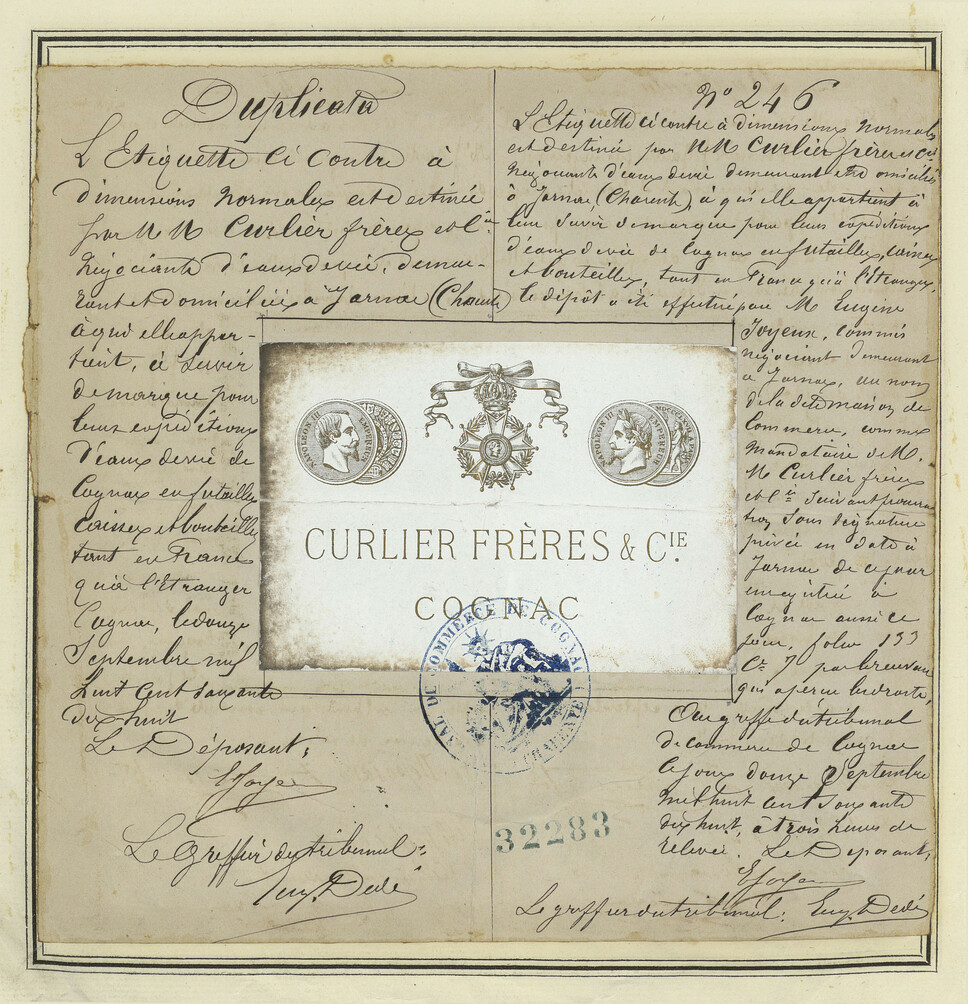 Duplicata
L'Etiquette ci contre à
dimensions normales est destinée
par MM Curlier frères et Cie
Négociants d'eaux de vie, demeu-
rant et domiciliés à Jarnac (Charente)
à qui elle appar-
tient, à servir
de marque pour
leurs expéditions
d'eaux de vie de
Cognac en futailles
caisses et bouteilles
tant en France
qu'à l'Etranger
Cognac, le douze
Septembre mil
huit cent soixante
dix huit
Le Déposant;
E Joyeux
Le Greffier du tribunal:
Eug. Dedé
No 246
L'Etiquette ci contre à dimensions normales
est destinée par MM Curlier frères et Cie
Négociants d'eaux de vie demeurant et domiciliés
à Jarnac (Charente), à qui elle appartient à
leur servir de marque pour leurs expéditions
d'eaux de vie de Cognac en futailles, caisses
et bouteilles, tant en France qu'à l'Etranger,
le dépôt a été effectué par M Eugène
Joyeux, commis
négociant demeurant
à Jarnac, au nom
de la dite maison de
Commerce, comme
mandataire de M.
M Curlier frères
et Cie suivant pouvoir
sous signature
privée en date à
Jarnac de ce jour
enregistrée à
Cognac aussi ce
jour, folio 133
Ce 7 par
qui a perçu les droits,
Au greffe du tribunal
de commerce de Cognac
Ce jour douze Septembre
mil huit cent soixante
dix huit, à trois heures de
relevée. Le Déposant;
E Joyeux
Le greffier du tribunal: Eug. Dedé
NAPOLEON III EMPEREUR
NAPOLEON III EMPEREUR
CURLIER FRÈRES & CIE.
COGNAC
TRIBUNAL DE COMMERCE DE COGNAC
(CHARENTE)
32283